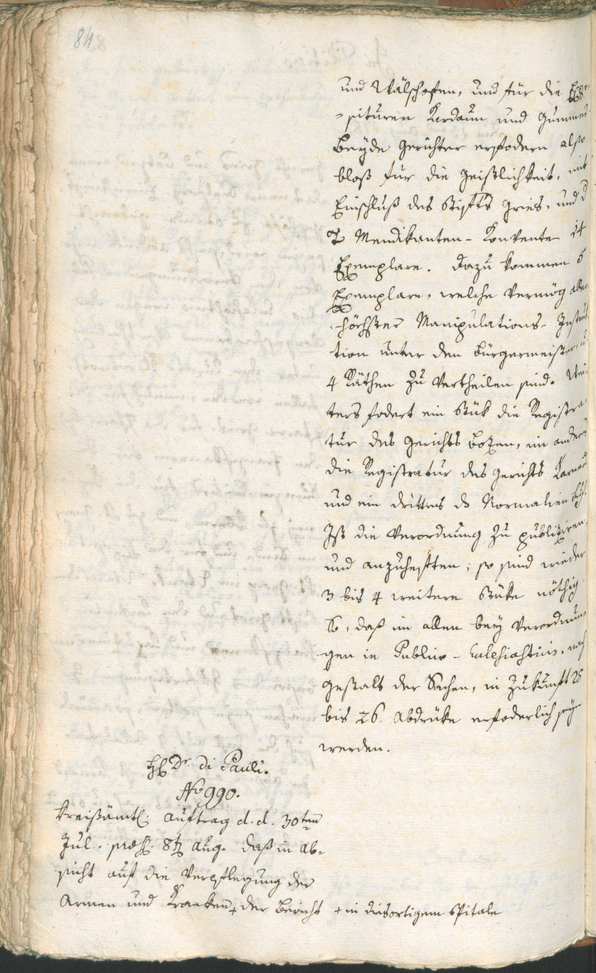 84
und Wälschofen, und für die Ex-
-posituren Kardaun und Gummer
Beyde Gerichter erfodern also
bloß für die Geistlichkeit, mit
Einschluß des Stifts Gries, und d
2 Mendikanten-Konvente 14
Exemplare. Dazu kommen 5
Exemplare, welche vermög aller
höchster Manipulations-Instruk
tion unter den Bürgermeister, u
4 Räthen zu vertheilen sind. Wei
ters fodert ein Stük die Registra
tur des Gerichts Botzen, ein anderes
die Registratur des Gerichts Karneid
und ein drittes die Normalien
Ist die Verordnung zu publiziren
und anzuheften; so sind wieder
3 bis 4 weitere Stüke nöthig
So, daß in allen bey Verordnun
gen in Publico-Ecclesiasticis, nach
gestalt der Sachen, in Zukunft 25
bis 26 Abdrüke erfoderlich seyn
werden.
H. Dr. di Pauli.
No 990.
Kreisämtl: Auftrag d. d. 30ten
Jul. praes. 8t Aug. daß in Ab-
sicht auf die Verpflegung der
Armen und Kranken + der Bericht + in diesortigem Spitale